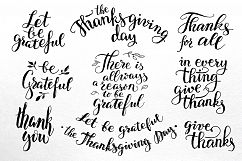 Let
be
grateful
the
Thanksgiving
day
Thanks
for all
be
Grateful
There is
allways
a reason
to be
grateful
in every
thing
give
thanks
thank
you
Let be grateful
the Thanksgiving Day
Give
thanks